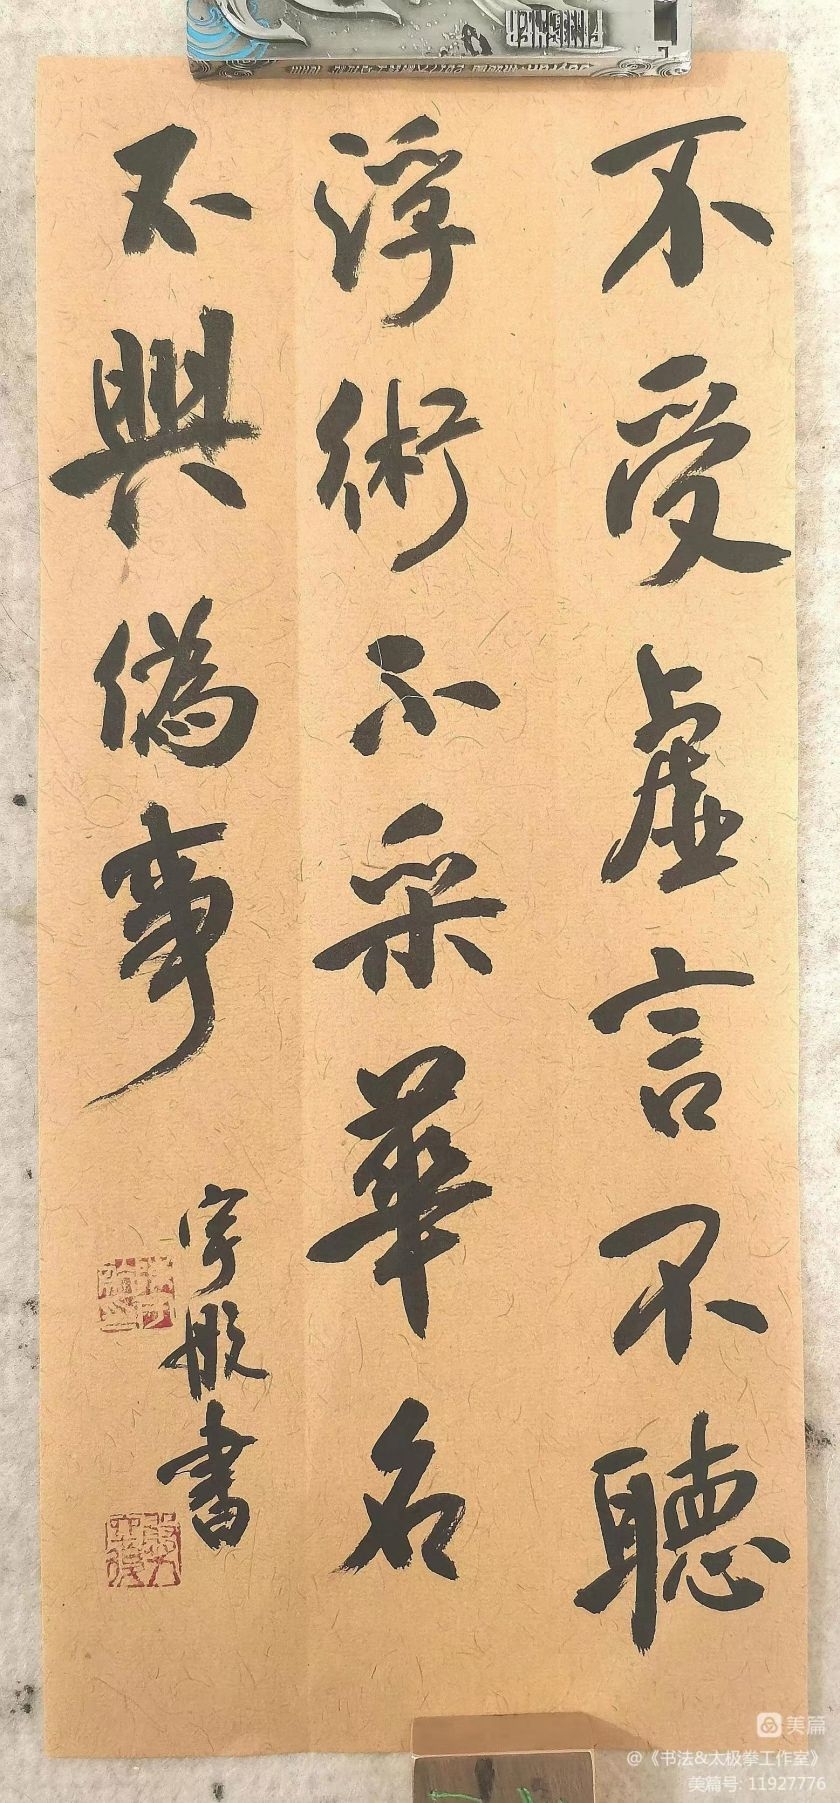 不受虛言不聽
浮術不采華名
不興偽事
宇般書
美篇
@《书法&太极拳工作室》
美篇号: 11927776